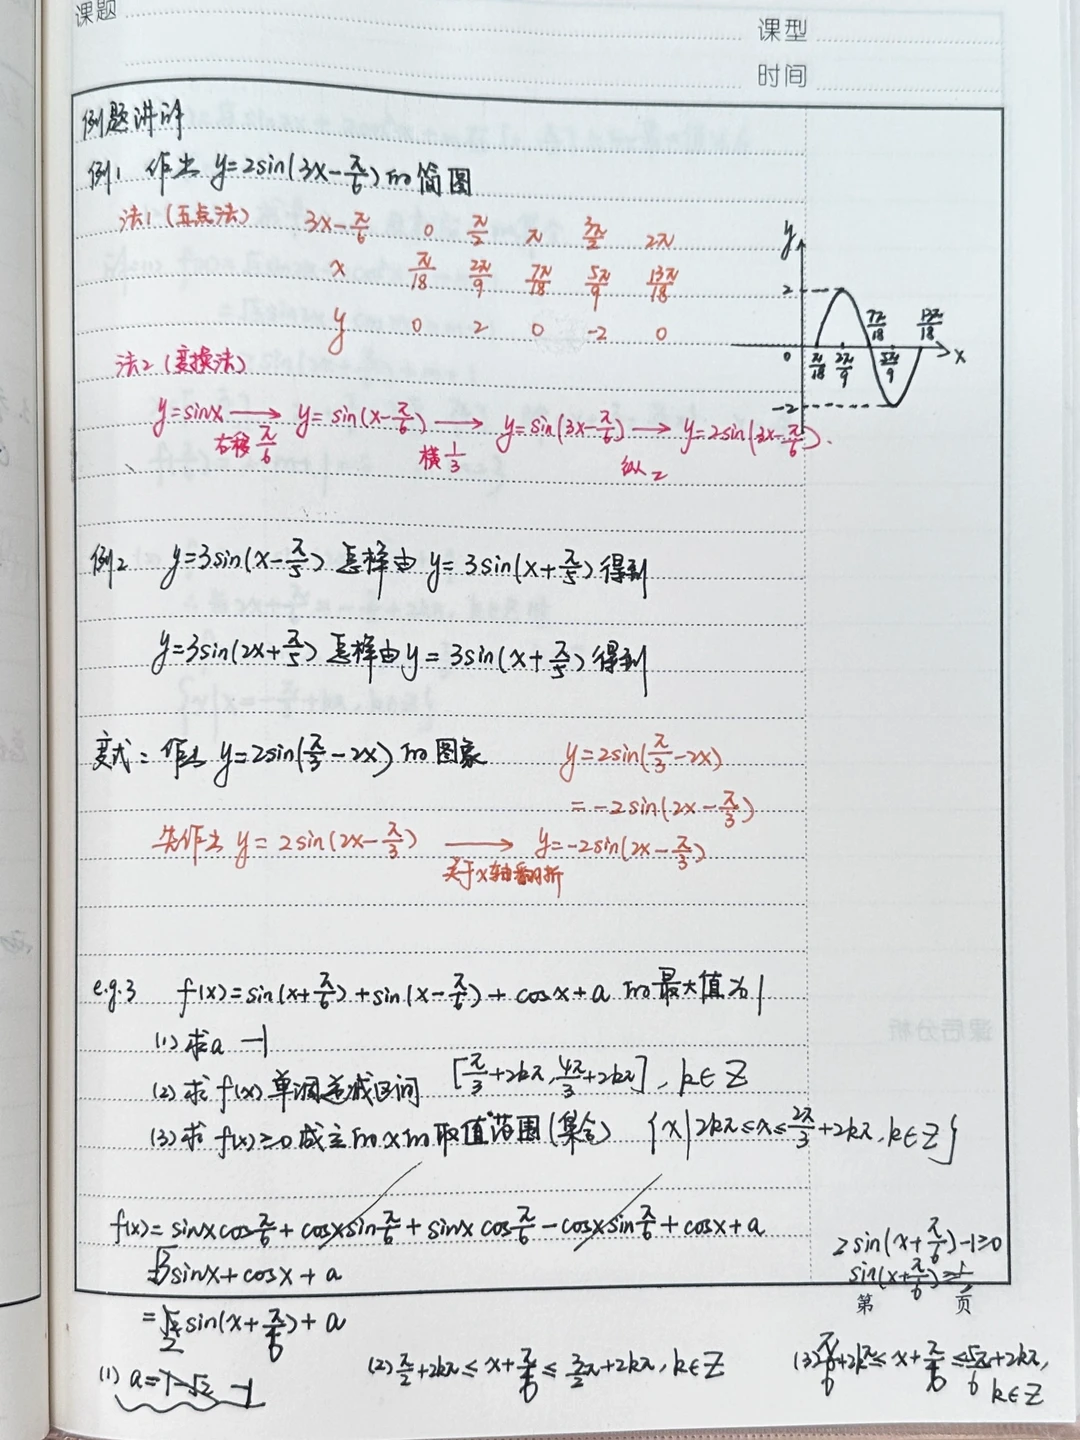 课题
课型
时间
例题讲评
例1 作出 y=2sin(3x-π/6)的简图
法1(五点法) 3x-π/6 0 π/2 π 3π/2 2π
x π/18 2π/9 7π/18 5π/9 13π/18
y 0 2 0 -2 0
y
2
0 π/18 2π/9 7π/18 5π/9 13π/18 x
-2
法2(变换法)
y=sinx → y=sin(x-π/6) → y=sin(3x-π/6) → y=2sin(3x-π/6).
右移π/6 横1/3 纵2
例2 y=3sin(x-π/5)怎样由y=3sin(x+π/5)得到
y=3sin(2x+π/5)怎样由y=3sin(x+π/5)得到
变式:作出 y=2sin(π/3-2x)的图象 y=2sin(π/3-2x)
=-2sin(2x-π/3)
先作出 y=2sin(2x-π/3) → y=-2sin(2x-π/3)
关于x轴翻折
e.g.3 f(x)=sin(x+π/6)+sin(x-π/6)+cosx+a的最大值为1
(1)求a -1
(2)求f(x)单调递减区间 [π/3+2kπ,4π/3+2kπ],k∈Z
(3)求f(x)≥0成立的x的取值范围(集合) {x|2kπ≤x≤2π/3+2kπ,k∈Z}
f(x)=sinxcosπ/6+cosxsinπ/6+sinxcosπ/6-cosxsinπ/6+cosx+a
=√3sinx+cosx+a
=2sin(x+π/6)+a
(1) a=1-√2 -1
(2)π/2+2kπ≤x+π/6≤3/2π+2kπ,k∈Z
2sin(x+π/6)-1≥0
sin(x+π/6)≥1/2
第 页
(3)π/6+2kπ≤x+π/6≤5π/6+2kπ,
k∈Z